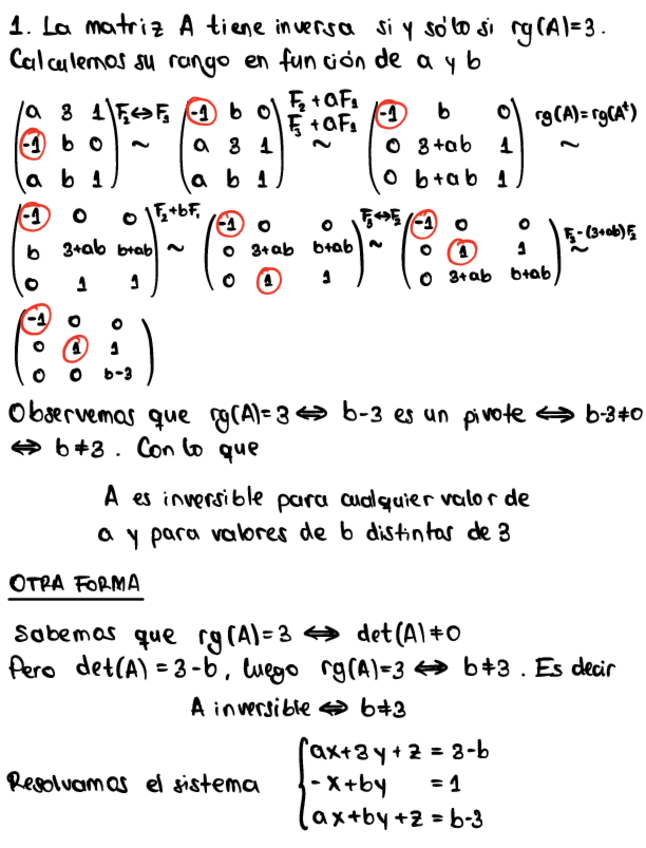 1. La matriz A tiene inversa si y sólo si rg(A)=3.
Calculemos su rango en función de a y b
(a 3 1; -1 b 0; a b 1) F₂⇔F₃ ~ (-1 b 0; a 3 1; a b 1) F₂+aF₁ F₃+aF₁ ~ (-1 b 0; 0 3+ab 1; 0 b+ab 1) rg(A)=rg(Aᵗ) ~
(-1 0 0; b 3+ab b+ab; 0 1 1) F₂+bF₁ ~ (-1 0 0; 0 3+ab b+ab; 0 1 1) F₃⇔F₂ ~ (-1 0 0; 0 1 1; 0 3+ab b+ab) F₃-(3+ab)F₂ ~
(-1 0 0; 0 1 1; 0 0 b-3)
Observemos que rg(A)=3 ⇔ b-3 es un pivote ⇔ b-3≠0
⇔ b≠3. Con lo que
A es inversible para cualquier valor de
a y para valores de b distintas de 3
OTRA FORMA
Sabemos que rg(A)=3 ⇔ det(A)≠0
Pero det(A)=3-b, luego rg(A)=3 ⇔ b≠3. Es decir
A inversible ⇔ b≠3
Resolvamos el sistema
ax+3y+z = 3-b
-x+by = 1
ax+by+z = b-3